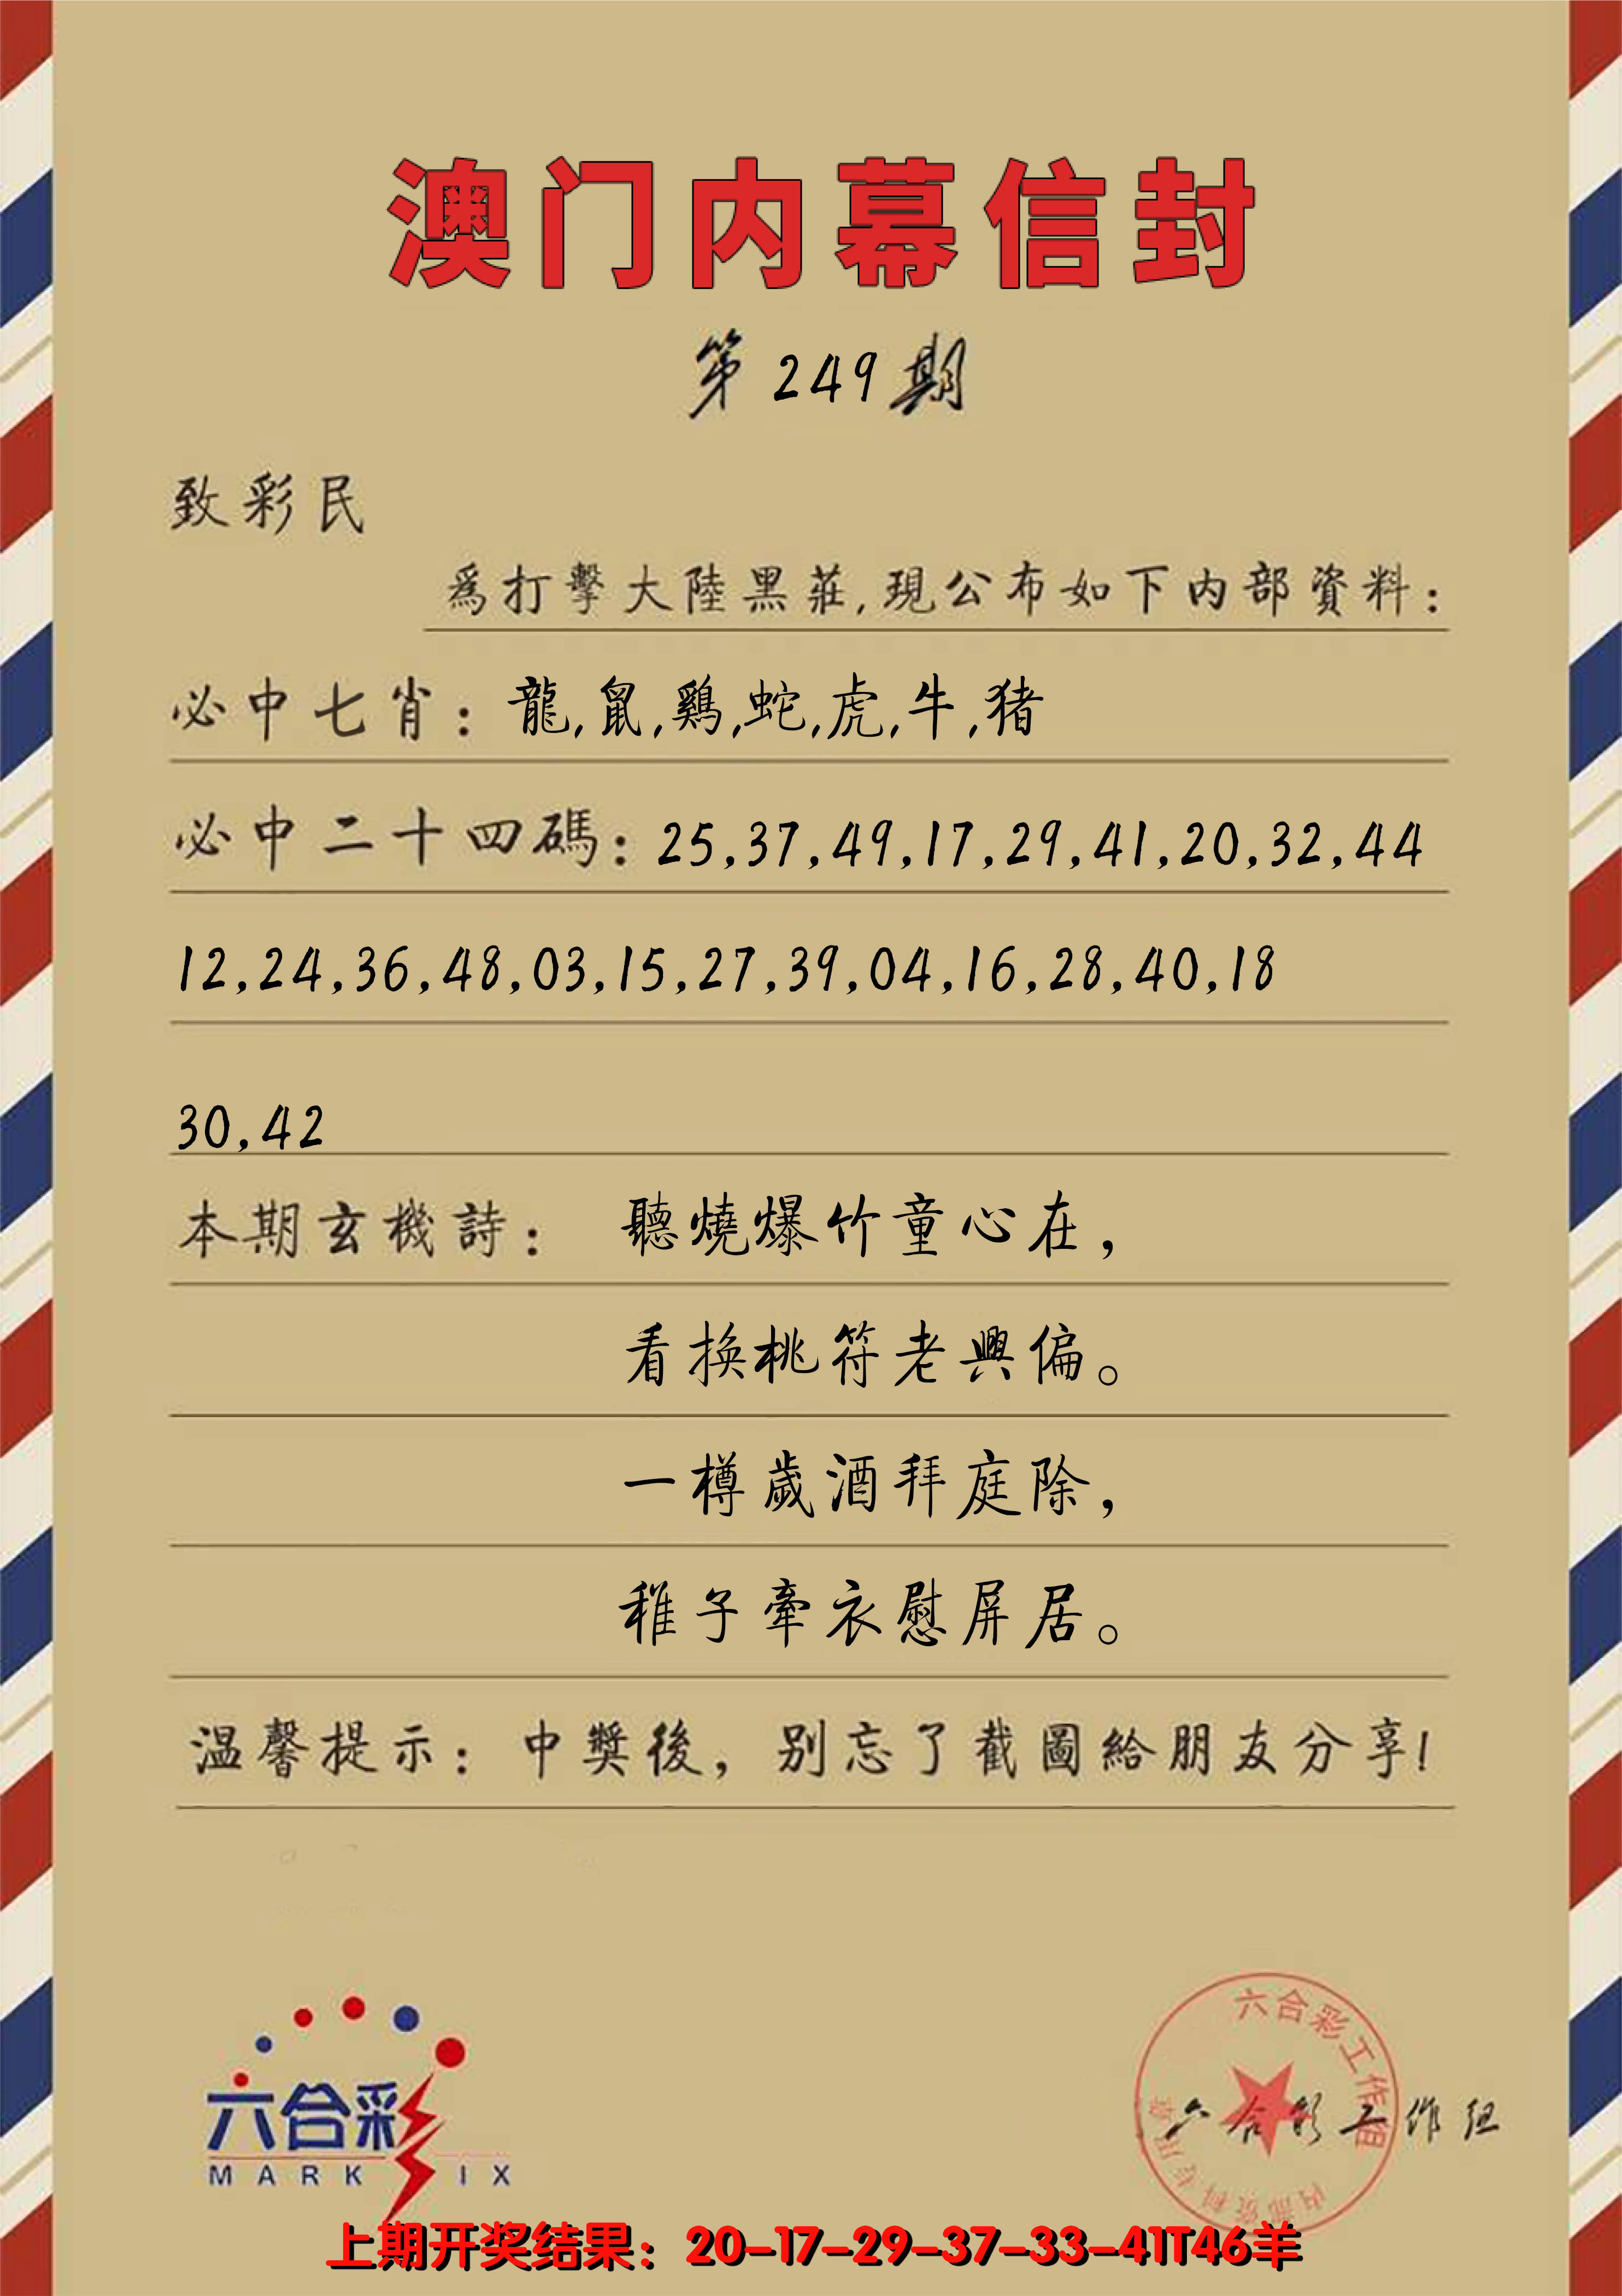 澳门内幕信封
第249期
致彩民
爲打擊大陸黑莊,現公布如下内部資料:
必中七肖:龍,鼠,鷄,蛇,虎,牛,猪
必中二十四碼:25,37,49,17,29,41,20,32,44
12,24,36,48,03,15,27,39,04,16,28,40,18
30,42
本期玄機詩: 聽燒爆竹童心在,
看换桃符老興偏。
一樽歲酒拜庭除,
稚子牽衣慰屏居。
温馨提示:中獎後,别忘了截圖給朋友分享!
六合彩
MARK IX
六合彩工作组
内部资料专用章
六合彩工作组
上期开奖结果:20-17-29-37-33-41T46羊